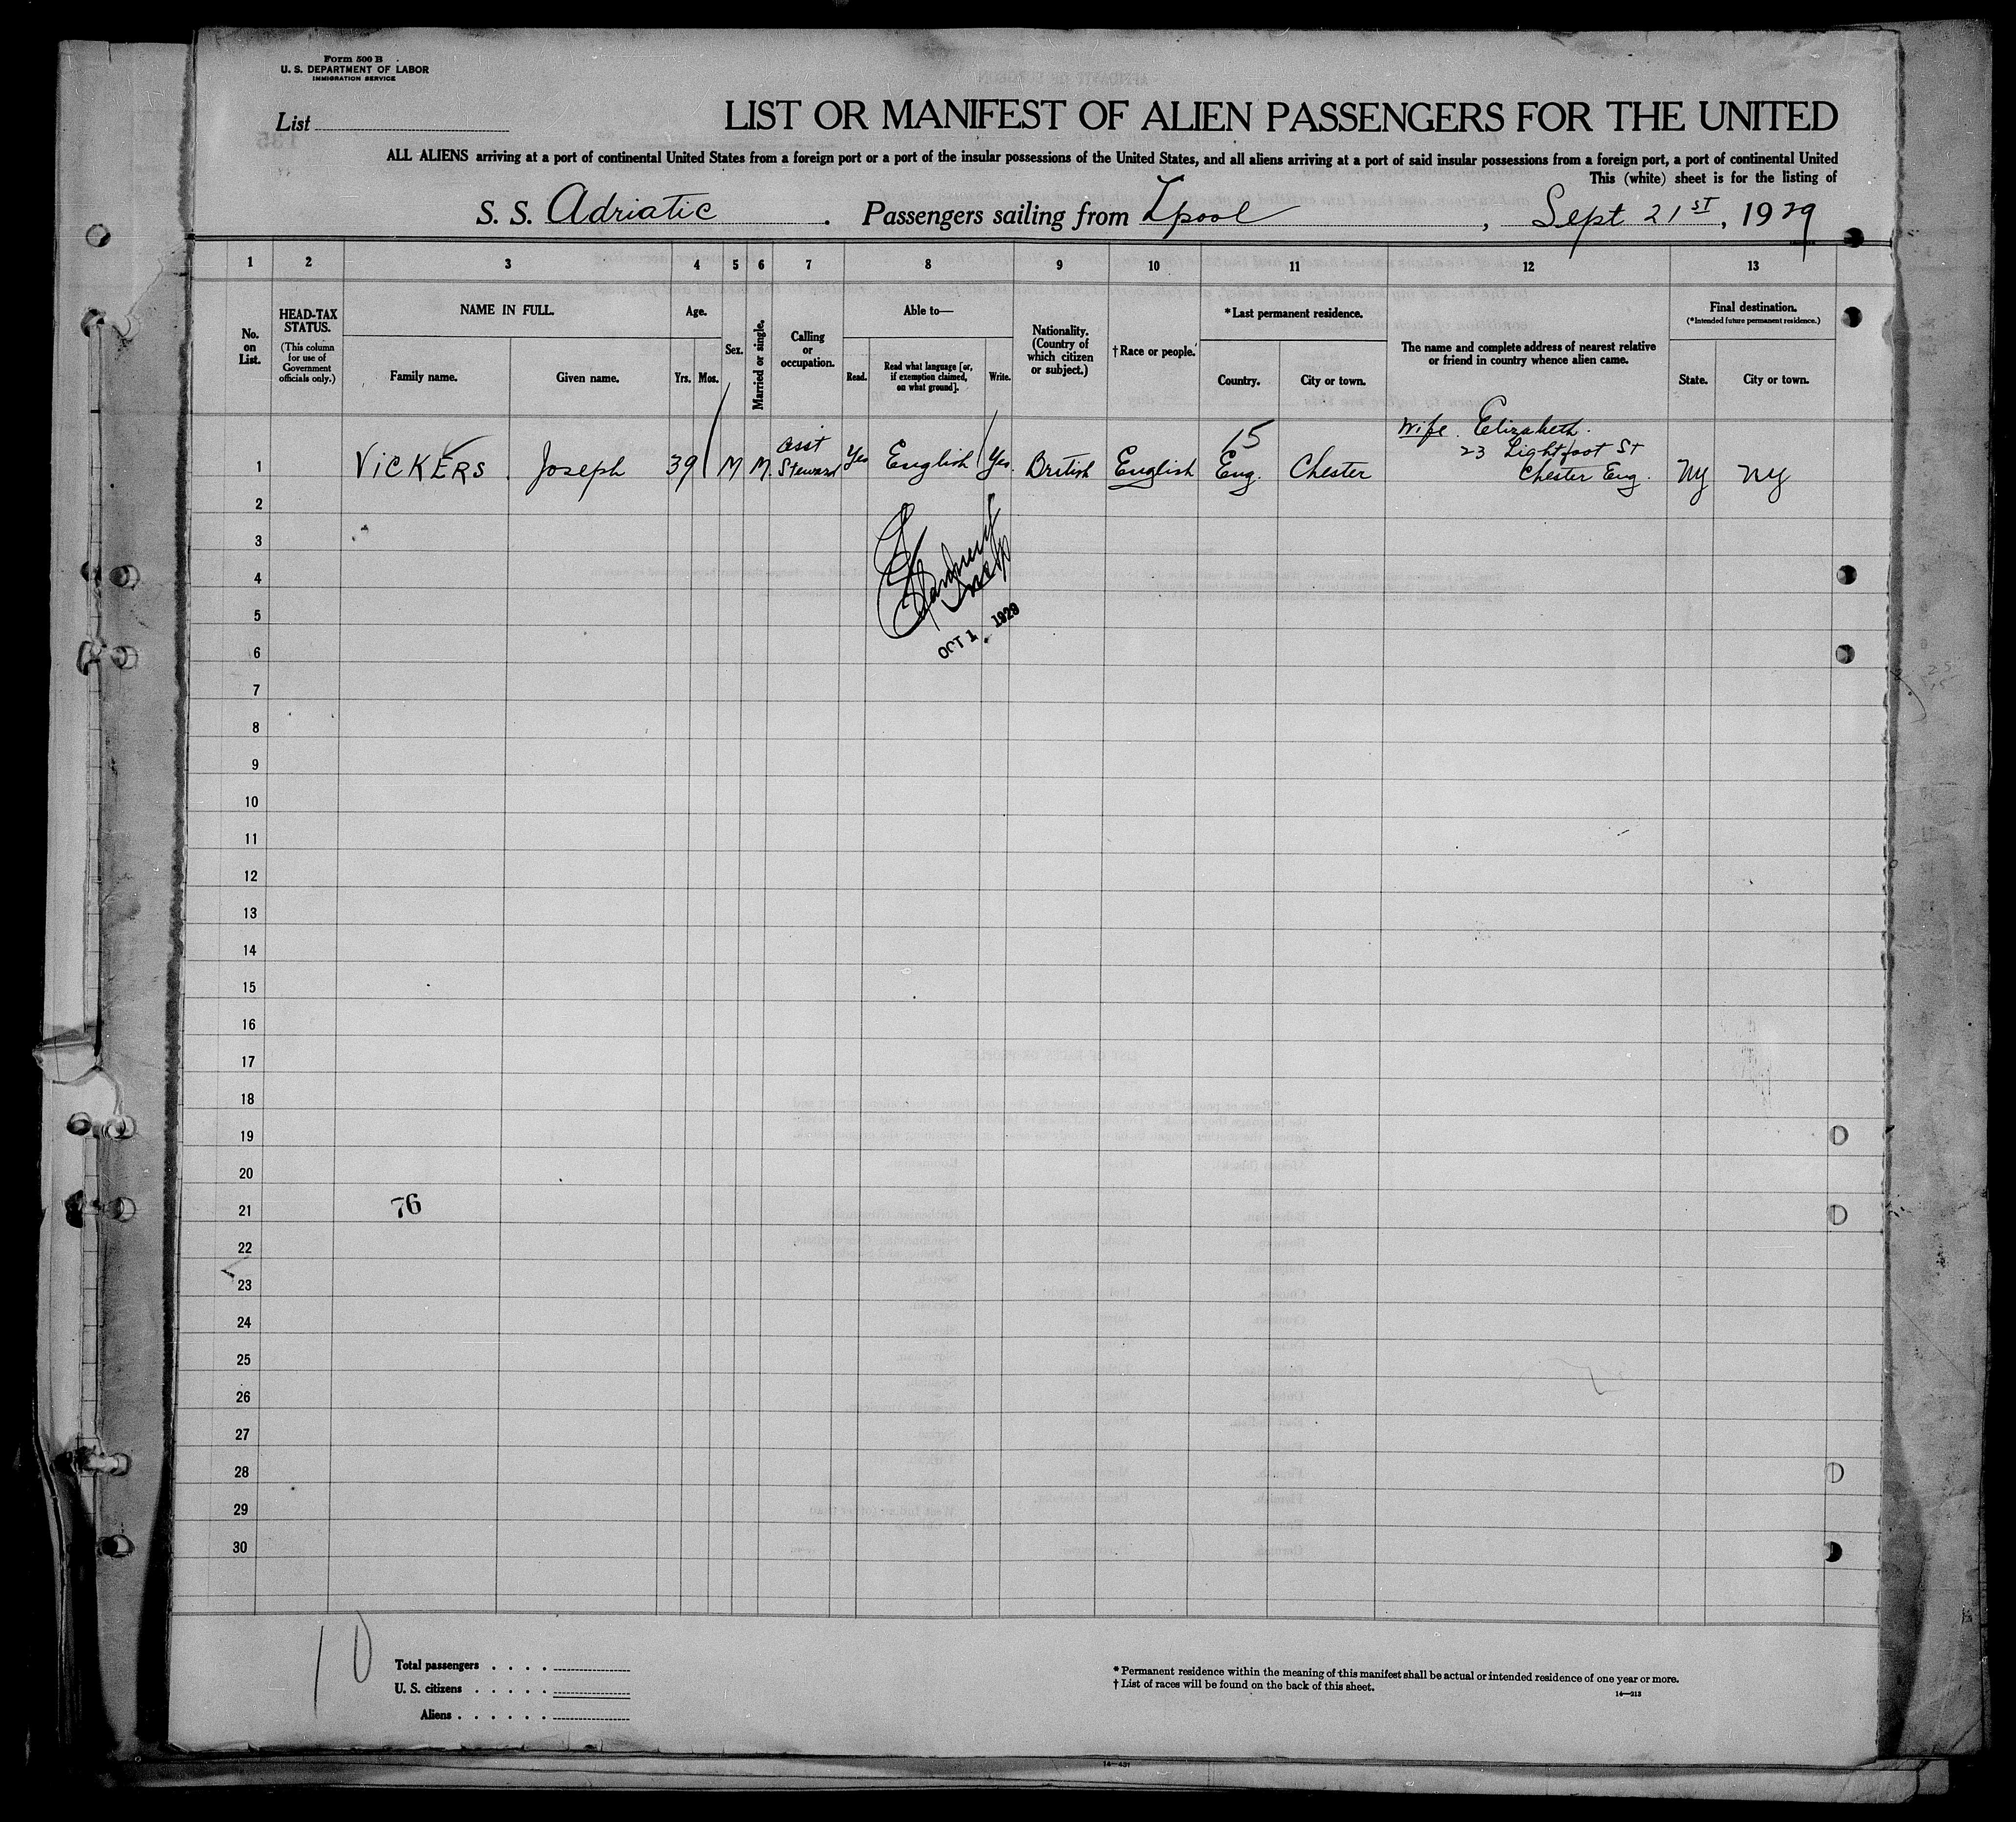 Form 500 B
U. S. DEPARTMENT OF LABOR
IMMIGRATION SERVICE
List
LIST OR MANIFEST OF ALIEN PASSENGERS FOR THE UNITED
ALL ALIENS arriving at a port of continental United States from a foreign port or a port of the insular possessions of the United States, and all aliens arriving at a port of said insular possessions from a foreign port, a port of continental United
This (white) sheet is for the listing of
S. S. Adriatic . Passengers sailing from Lpool , Sept 21ST, 1929
1 2 3 4 5 6 7 8 9 10 11 12 13
No. on List.
HEAD-TAX STATUS.
(This column for use of Government officials only.)
NAME IN FULL.
Family name. Given name.
Age.
Yrs. Mos.
Sex.
Married or single.
Calling or occupation.
Able to—
Read. Read what language [or, if exemption claimed, on what ground]. Write.
Nationality. (Country of which citizen or subject.)
†Race or people.
*Last permanent residence.
Country. City or town.
The name and complete address of nearest relative or friend in country whence alien came.
Final destination.
(*Intended future permanent residence.)
State. City or town.
1 VICKERS Joseph 39 M M asst Steward Yes English Yes British English 15 Eng. Chester Wife. Elizabeth. 23 Lightfoot St Chester Eng. NY NY
2
3
4
5
OCT 1 1929
6
7
8
9
10
11
12
13
14
15
16
17
18
19
20
21 76
22
23
24
25
26
27
28
29
30
10
Total passengers . . . .
U. S. citizens . . . . .
Aliens . . . . . .
* Permanent residence within the meaning of this manifest shall be actual or intended residence of one year or more.
† List of races will be found on the back of this sheet.
14—213
14—431